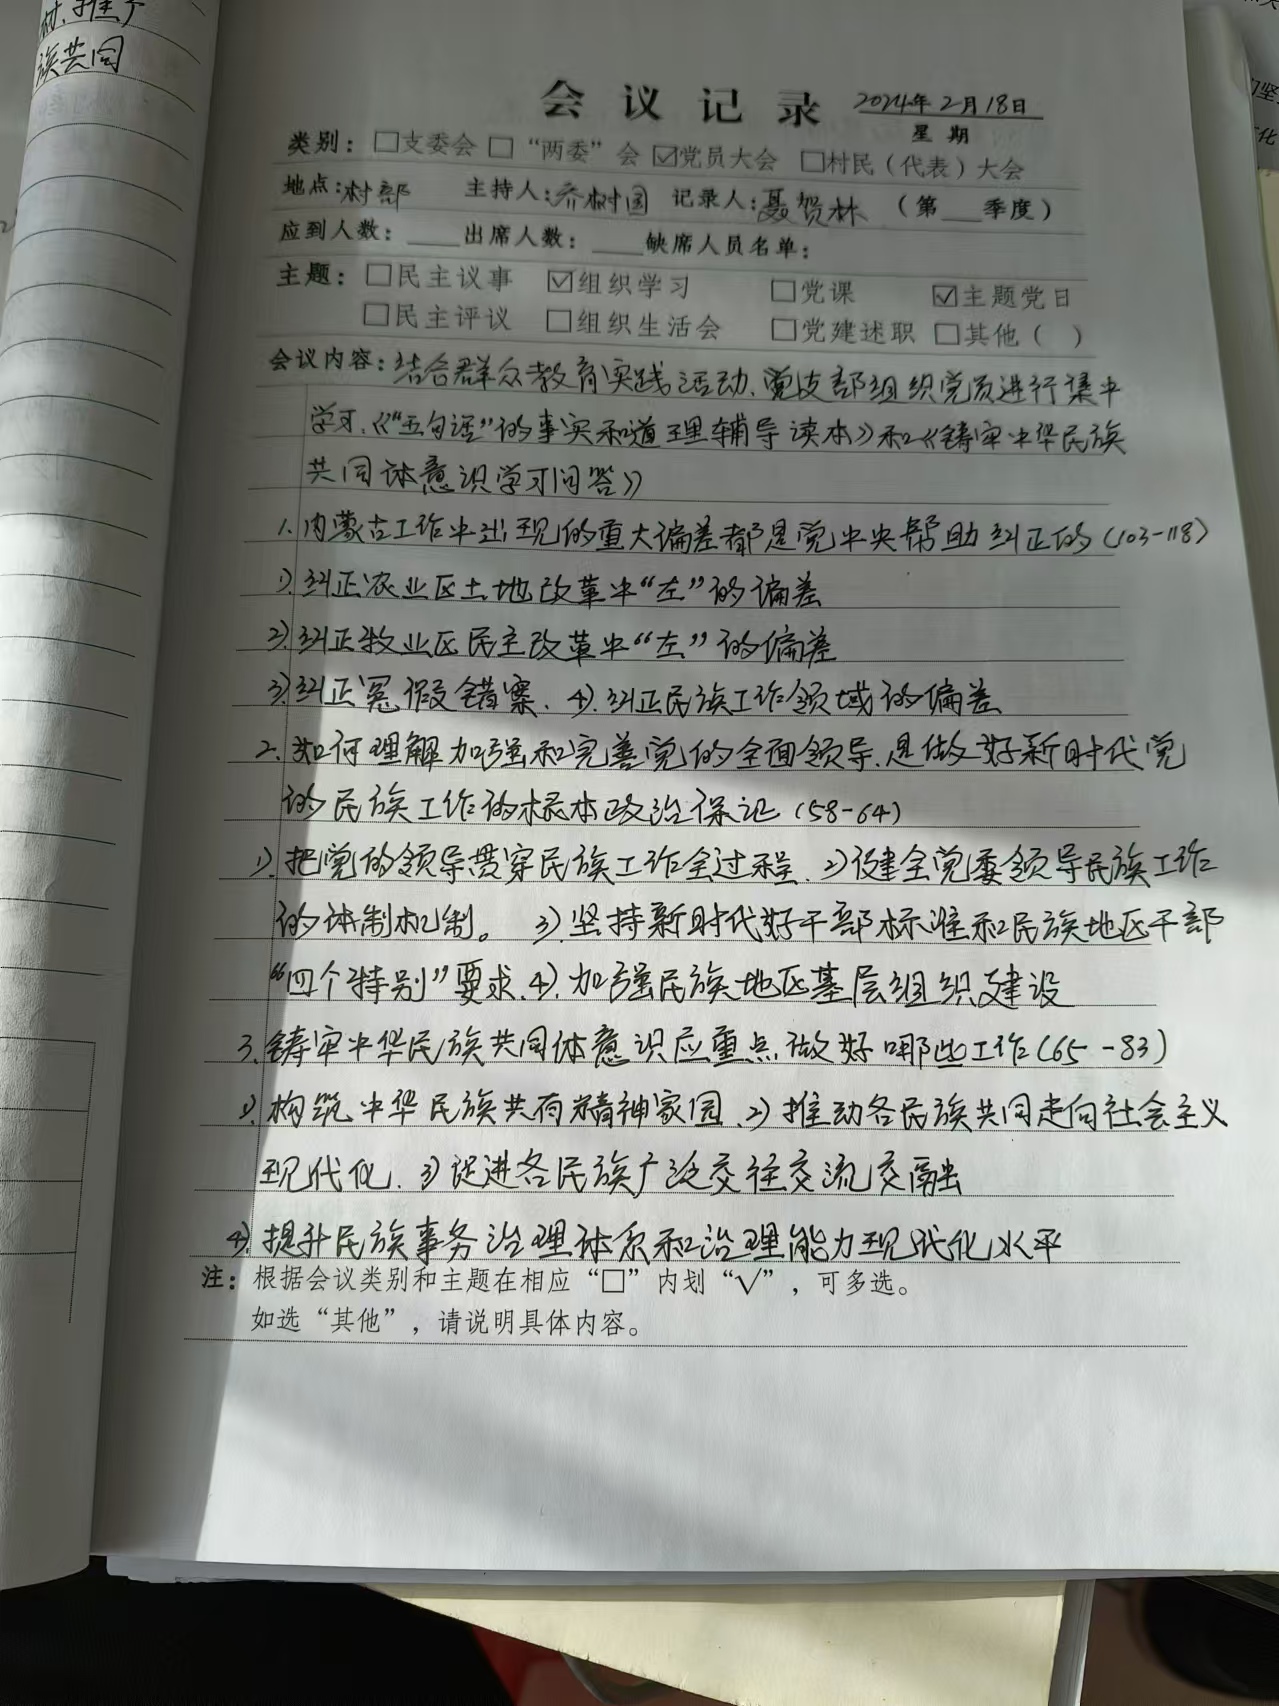 村.推
族共同
会议记录 2024年2月18日
星期
类别：□支委会 □“两委”会 ☑党员大会 □村民（代表）大会
地点：村部 主持人：乔树国 记录人：聂贺林 （第___季度）
应到人数：____出席人数：____缺席人员名单：
主题：□民主议事 ☑组织学习 □党课 ☑主题党日
□民主评议 □组织生活会 □党建述职 □其他（ ）
会议内容：结合群众教育实践活动、党支部组织党员进行集中
学习.《“五句话”的事实和道理辅导读本》和《铸牢中华民族
共同体意识学习问答》
1.内蒙古工作中出现的重大偏差都是党中央帮助纠正的（103-118）
1).纠正农业区土地改革中“左”的偏差
2).纠正牧业区民主改革中“左”的偏差
3).纠正冤假错案、4).纠正民族工作领域的偏差
2.如何理解加强和完善党的全面领导.是做好新时代党
的民族工作的根本政治保证（58-64）
1).把党的领导贯穿民族工作全过程、2)健全党委领导民族工作
的体制机制。 3).坚持新时代好干部标准和民族地区干部
“四个特别”要求、4).加强民族地区基层组织建设
3.铸牢中华民族共同体意识应重点做好哪些工作（65-83）
1).构筑中华民族共有精神家园、2)推动各民族共同走向社会主义
现代化、3)促进各民族广泛交往交流交融
4).提升民族事务治理体系和治理能力现代化水平
注：根据会议类别和主题在相应“□”内划“√”，可多选。
如选“其他”，请说明具体内容。